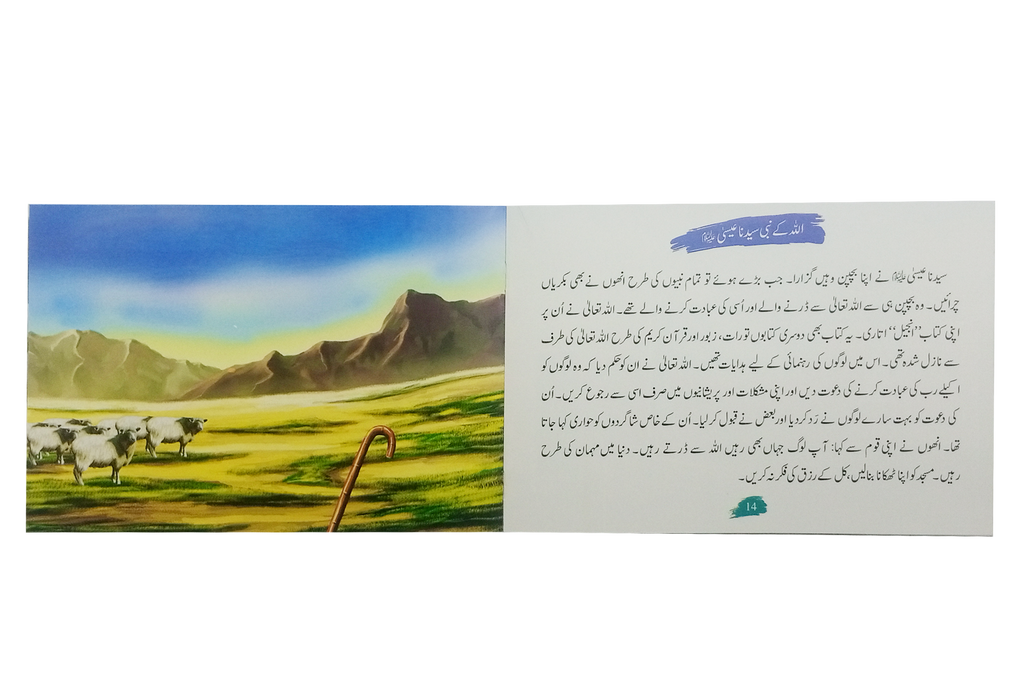 اللہ کے نبی سیدنا عیسیٰ علیہ السلام
سیدنا عیسیٰ علیہ السلام نے اپنا بچپن وہیں گزارا۔ جب بڑے ہوئے تو تمام نبیوں کی طرح انھوں نے بھی بکریاں
چرائیں۔ وہ بچپن ہی سے اللہ تعالیٰ سے ڈرنے والے اور اُسی کی عبادت کرنے والے تھے۔ اللہ تعالیٰ نے اُن پر
اپنی کتاب ’’انجیل‘‘ اتاری۔ یہ کتاب بھی دوسری کتابوں تورات، زبور اور قرآن کریم کی طرح اللہ تعالیٰ کی طرف
سے نازل شدہ تھی۔ اس میں لوگوں کی رہنمائی کے لیے ہدایات تھیں۔ اللہ تعالیٰ نے ان کو حکم دیا کہ وہ لوگوں کو
اکیلے رب کی عبادت کرنے کی دعوت دیں اور اپنی مشکلات اور پریشانیوں میں صرف اسی سے رجوع کریں۔ اُن
کی دعوت کو بہت سارے لوگوں نے رَد کر دیا اور بعض نے قبول کر لیا۔ اُن کے خاص شاگردوں کو حواری کہا جاتا
تھا۔ انھوں نے اپنی قوم سے کہا: آپ لوگ جہاں بھی رہیں اللہ سے ڈرتے رہیں۔ دنیا میں مہمان کی طرح
رہیں۔ مسجد کو اپنا ٹھکانا بنالیں، کل کے رزق کی فکر نہ کریں۔
14